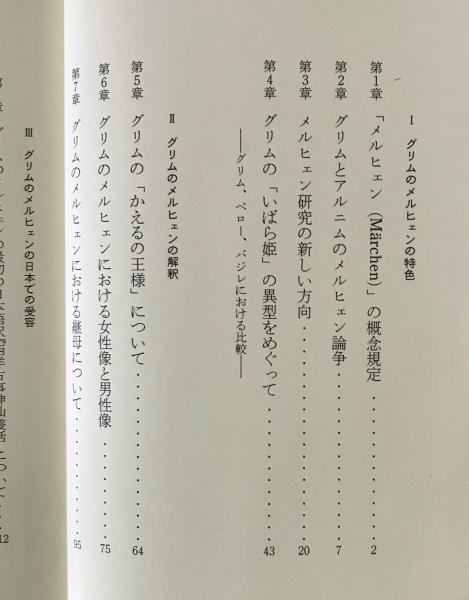 I グリムのメルヒェンの特色
第1章 「メルヒェン(Märchen)」の概念規定……………2
第2章 グリムとアルニムのメルヒェン論争……………7
第3章 メルヒェン研究の新しい方向……………20
第4章 グリムの「いばら姫」の異型をめぐって……………43
——グリム、ペロー、バジレにおける比較——
II グリムのメルヒェンの解釈
第5章 グリムの「かえるの王様」について……………64
第6章 グリムのメルヒェンにおける女性像と男性像……………75
第7章 グリムのメルヒェンにおける継母について……………95
III グリムのメルヒェンの日本での受容
12